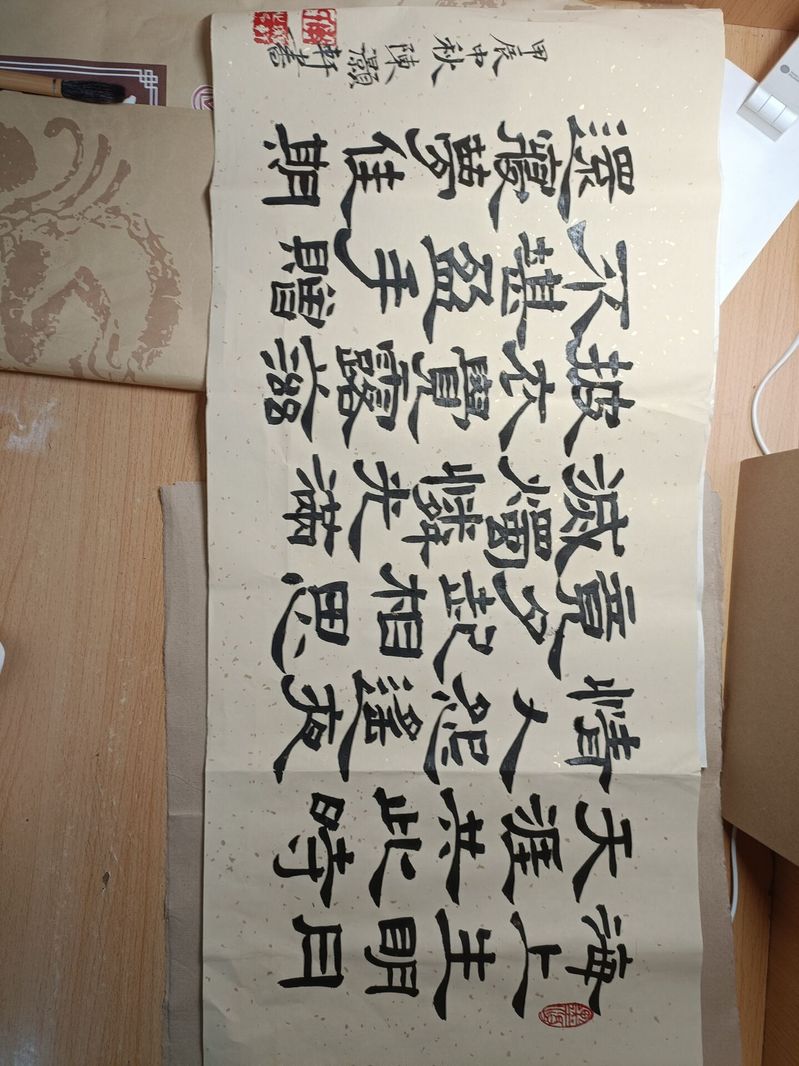 海上生明月
天涯共此時
情人怨遙夜
竟夕起相思
滅燭憐光滿
披衣覺露滋
不堪盈手贈
還寢夢佳期
甲辰中秋陳灝軒書